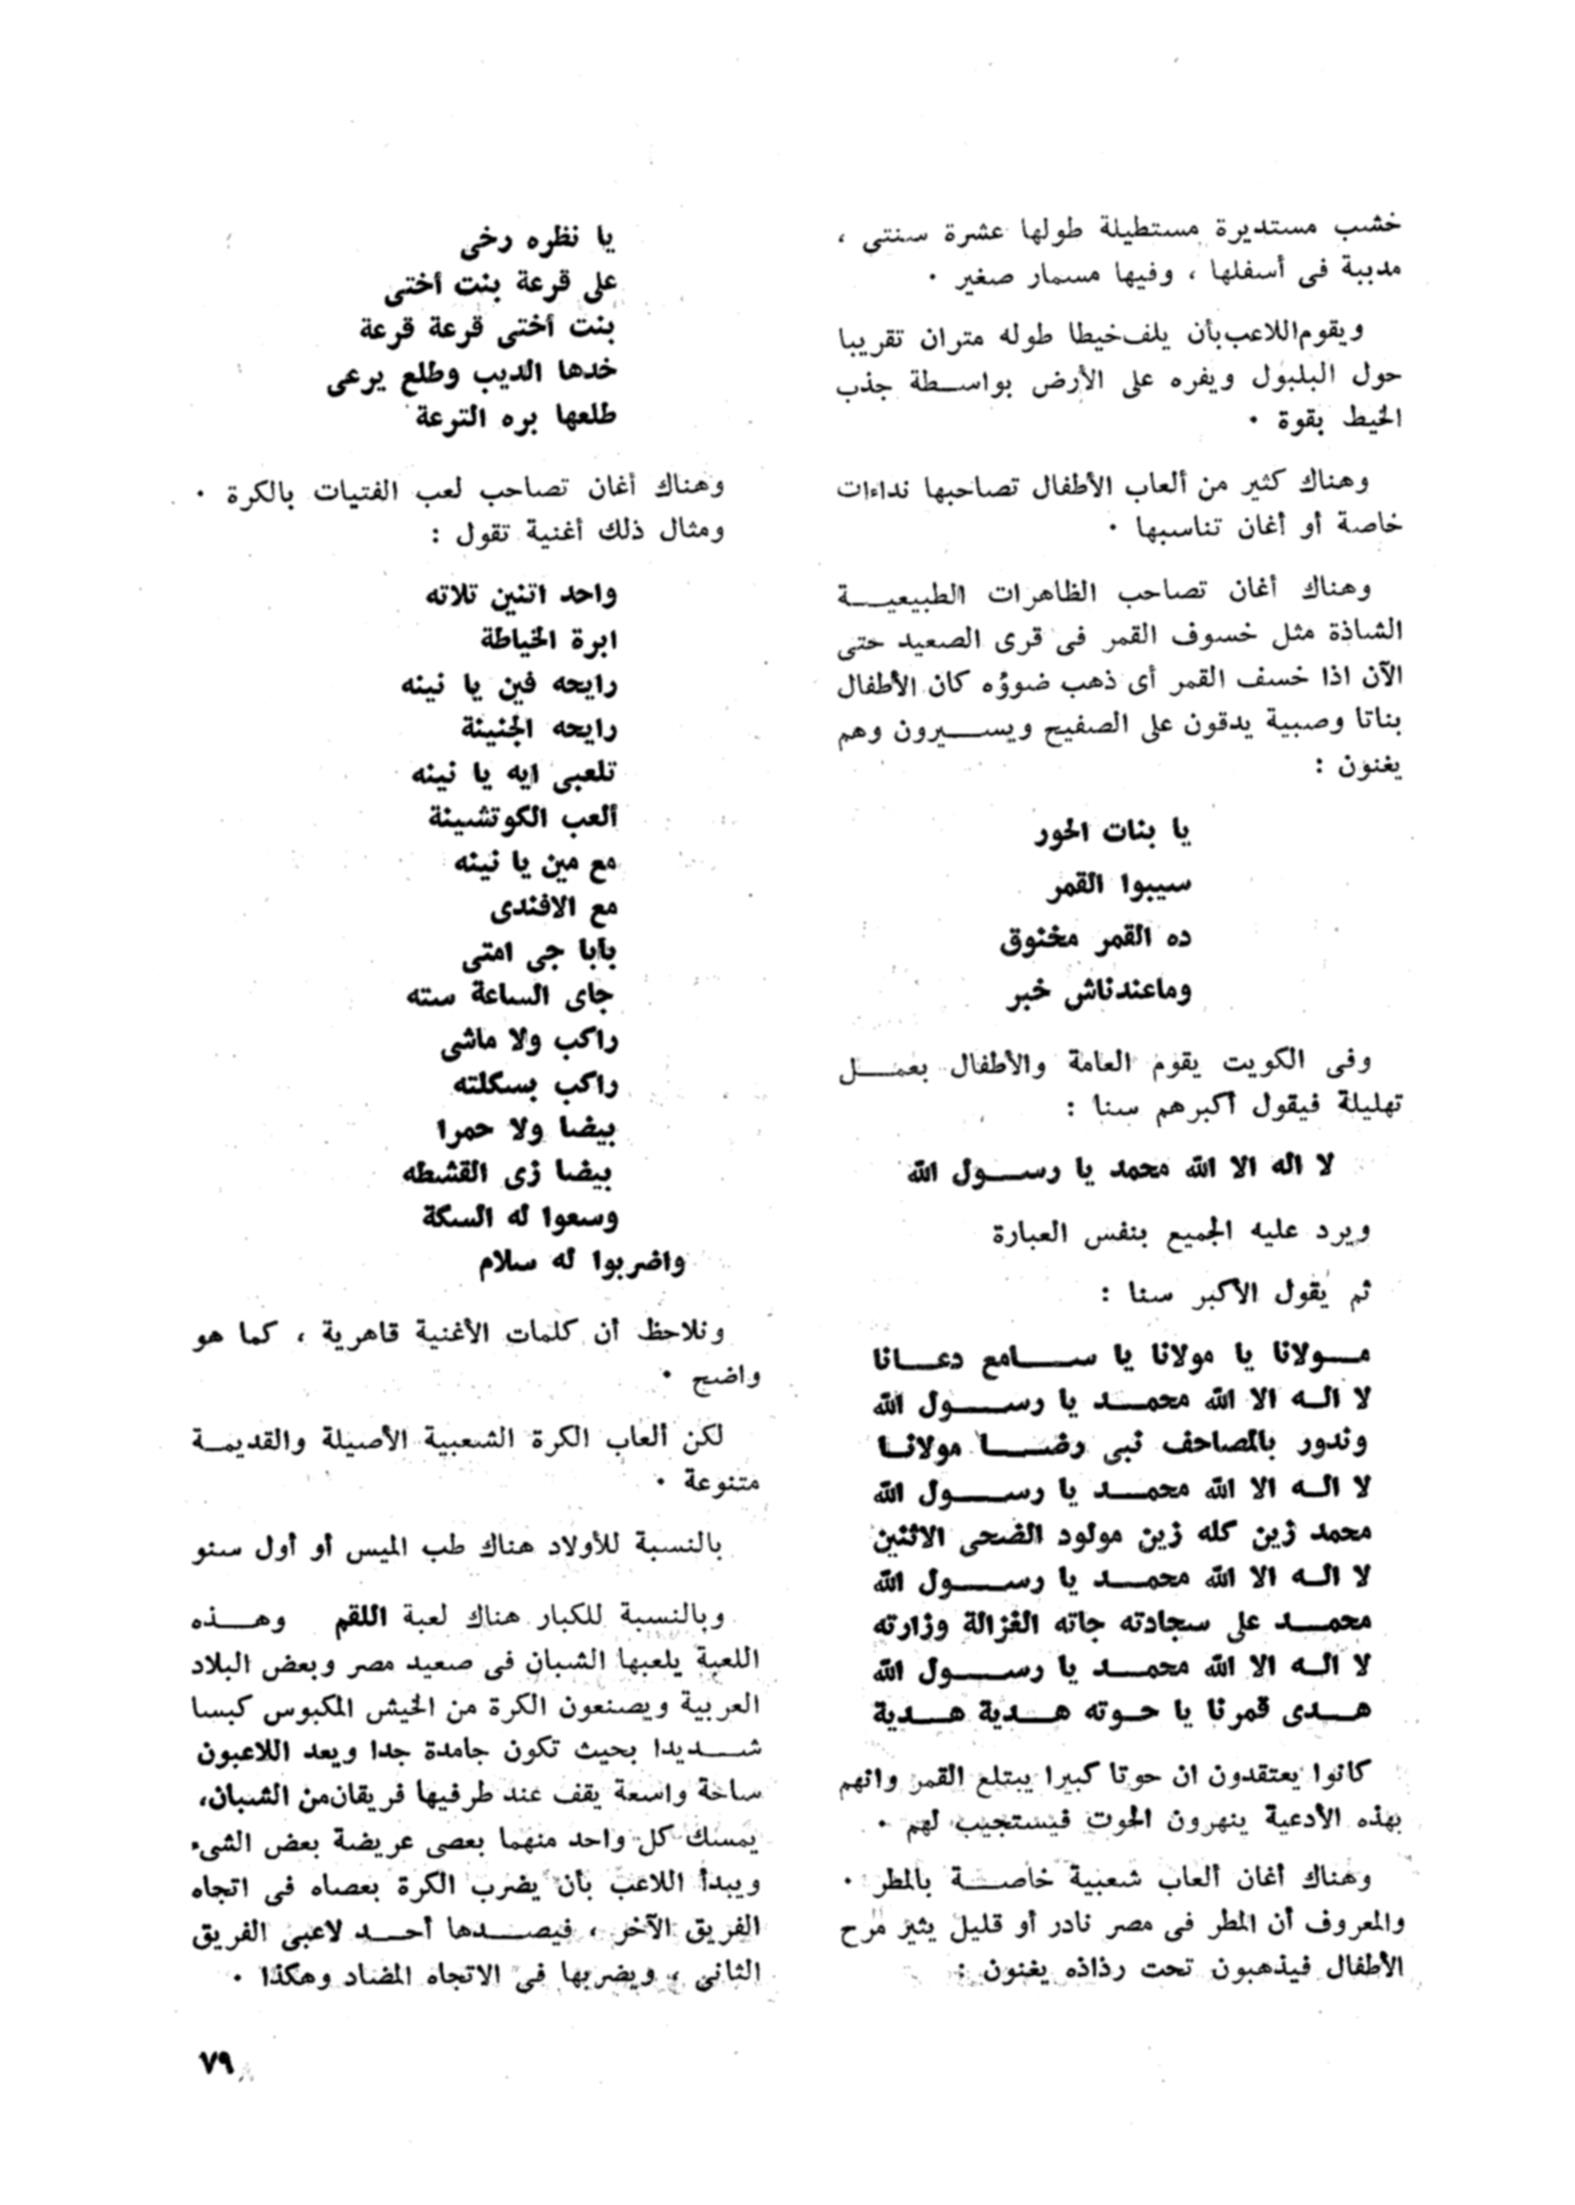 خشب مستديرة مستطيلة طولها عشرة سنتى ،
مدببة فى أسفلها ، وفيها مسمار صغير ٠
ويقوم اللاعب بأن يلف خيطا طوله متران تقريبا
حول البلبول ويفره على الأرض بواسطة جذب
الخيط بقوة ٠
وهناك كثير من ألعاب الأطفال تصاحبها نداءات
خاصة أو أغان تناسبها ٠
وهناك أغان تصاحب الظاهرات الطبيعية
الشاذة مثل خسوف القمر فى قرى الصعيد حتى
الآن اذا خسف القمر أى ذهب ضوؤه كان الأطفال
بناتا وصبية يدقون على الصفيح ويسيرون وهم
يغنون :
يا بنات الحور
سيبوا القمر
ده القمر مخنوق
وماعندناش خبر
وفى الكويت يقوم العامة والأطفال بعمل
تهليلة فيقول أكبرهم سنا :
لا اله الا الله محمد يا رسول الله
ويرد عليه الجميع بنفس العبارة
ثم يقول الأكبر سنا :
مولانا يا مولانا يا سامع دعانا
لا اله الا الله محمد يا رسول الله
وندور بالمصاحف نبى رضا مولانا
لا اله الا الله محمد يا رسول الله
محمد زين كله زين مولود الضحى الاثنين
لا اله الا الله محمد يا رسول الله
محمد على سجادته جاته الغزالة وزارته
لا اله الا الله محمد يا رسول الله
هدى قمرنا يا حوته هدية هدية
كانوا يعتقدون ان حوتا كبيرا يبتلع القمر وانهم
بهذه الأدعية ينهرون الحوت فيستجيب لهم ٠
وهناك أغان ألعاب شعبية خاصة بالمطر ٠
والمعروف أن المطر فى مصر نادر أو قليل يثير مرح
الأطفال فيذهبون تحت رذاذه يغنون :
يا نظره رخى
على قرعة بنت أختى
بنت أختى قرعة قرعة
خدها الديب وطلع يرعى
طلعها بره الترعة
وهناك أغان تصاحب لعب الفتيات بالكرة ٠
ومثال ذلك أغنية تقول :
واحد اتنين تلاته
ابرة الخياطة
رايحه فين يا نينه
رايحه الجنينة
تلعبى ايه يا نينه
ألعب الكوتشينة
مع مين يا نينه
مع الافندى
بابا جى امتى
جاى الساعة سته
راكب ولا ماشى
راكب بسكلته
بيضا ولا حمرا
بيضا زى القشطه
وسعوا له السكة
واضربوا له سلام
ونلاحظ أن كلمات الأغنية قاهرية ، كما هو
واضح ٠
لكن ألعاب الكرة الشعبية الأصيلة والقديمة
متنوعة ٠
بالنسبة للأولاد هناك طب الميس أو أول سنو
وبالنسبة للكبار هناك لعبة اللقم وهذه
اللعبة يلعبها الشبان فى صعيد مصر وبعض البلاد
العربية ويصنعون الكرة من الخيش المكبوس كبسا
شديدا بحيث تكون جامدة جدا ويعد اللاعبون
ساحة واسعة يقف عند طرفيها فريقان من الشبان،
يمسك كل واحد منهما بعصى عريضة بعض الشىء
ويبدأ اللاعب بأن يضرب الكرة بعصاه فى اتجاه
الفريق الآخر ، فيصدها أحد لاعبى الفريق
الثانى ، ويضربها فى الاتجاه المضاد وهكذا ٠
٧٩